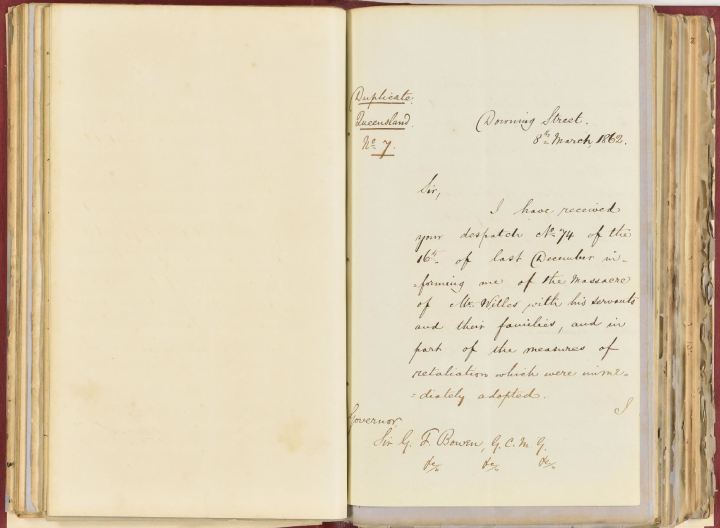 Duplicate.
Queensland.
No 7.
Downing Street.
8th March, 1862.
Sir,
I have received
your despatch No 74 of the
16th of last December in-
=forming me of the Massacre
of Mr. Willes with his servants
and their families, and in
part of the measures of
retaliation which were imme-
=diately adopted.
I
Governor
Sir G. F. Bowen, G. C. M. G.
&c/o &c/o &c/o